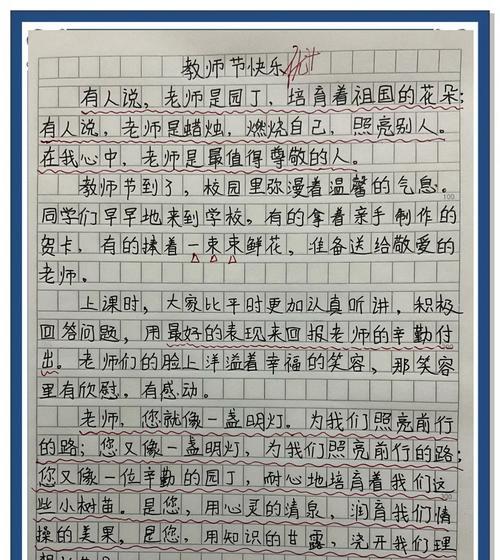 教师节快乐 优计
有人说，老师是园丁，培育着祖国的花朵；
有人说，老师是蜡烛，燃烧自己，照亮别人。
在我心中，老师是最值得尊敬的人。
教师节到了，校园里弥漫着温馨的气息。
同学们早早地来到学校，有的拿着亲手制作的
贺卡，有的揉着一束束鲜花，准备送给敬爱的
老师。
上课时，大家比平时更加认真听讲，积极
回答问题，用最好的表现来回报老师的辛勤付
出。老师们的脸上洋溢着幸福的笑容，那笑容
里有欣慰，有感动。
老师，您就像一盏明灯。为我们照亮前行
的路；您又像一盏明灯，为我们照亮前行的路；
您又像一位辛勤的园丁，耐心地培育着我们这
些小树苗。是您，用心灵的清泉，润育我们情
操的美果，是您，用知识的甘露，浇开我们理